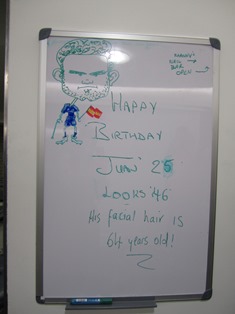 NEW
BAR
OPEN →
HAPPY
BIRTHDAY
JUAN 25
LOOKS 46
His facial hair is
64 years old!